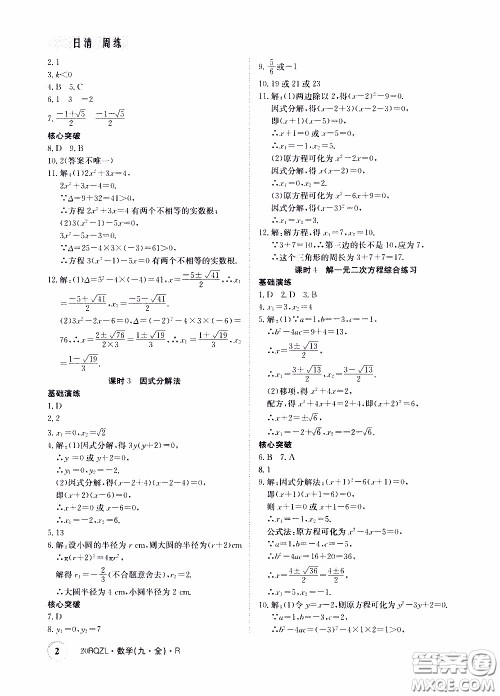 日清 周练
2. 1
3. k<0
4. B 5. C
6. 1 3 =2
7. (-1+√5)/2 (-1-√5)/2
核心突破
8. D 9. B
10. 2(答案不唯一)
11. 解:(1)2x²+3x=4,
2x²+3x-4=0,
∵Δ=9+32=41>0,
∴方程2x²+3x=4有两个不相等的实数根;
(2)3(x²-1)-5x=0,
3x²-5x-3=0,
∵Δ=25-4×3×(-3)=61>0,
∴方程3(x²-1)-5x=0有两个不相等的实数根.
12. 解:(1)Δ=5²-4×(-4)=41,∴x=(-5±√41)/2,∴x₁
=(-5+√41)/2,x₂=(-5-√41)/2.
(2)3x²-2x-6=0,∴Δ=(-2)²-4×3×(-6)=
76,∴x=(2±√76)/(2×3)=(1±√19)/3,∴x₁=(1+√19)/3,x₂
=(1-√19)/3.
课时3 因式分解法
基础演练
1. D
2. 2
3. x₁=0,x₂=√2
4. 解:(1)因式分解,得3(y)(y+2)=0,
∴y₁=0,y₂=-2.
(2)因式分解,得(x-2+4)(x-2-4)=0,
即(x+2)(x-6)=0,
∴x₁=-2,x₂=6.
5. 13
6. 解:设小圆的半径为r cm,则大圆的半径为(r+2)cm,
∴π(r+2)²=4πr²,
解得r₁=-2/3(不合题意舍去),r₂=2,
∴大圆半径为4 cm,小圆半径为2 cm.
核心突破
7. D
8. y₁=7,y₂=0
9. 5/6或-1
10. 19或21或23
11. 解:(1)两边除以2,得(x-2)²-9=0.
因式分解,得(x-2+3)(x-2-3)=0.
即(x+1)(x-5)=0.
∴x+1=0或x-5=0.
∴x₁=-1,x₂=5.
(2)原方程可化为(x-5)(x-2)=0.
∴x-5=0或x-2=0.
∴x₁=5,x₂=2.
(3)原方程可化为x²-6x+9=0.
因式分解,得(x-3)²=0.
∴x₁=x₂=3.
12. 解:解方程,得x₁=7,x₂=10.
∵3+7=10,∴第三边的长不是10,应为7.
∴这个三角形的周长为3+7+7=17.
课时4 解一元二次方程综合练习
基础演练
1. D 2. D 3. B
4. x₁=3,x₂=4
5. 解:(1)∵a=1,b=-3,c=-1,
∴b²-4ac=9+4=13,
∴x=(3±√13)/2,
∴x₁=(3+√13)/2,x₂=(3-√13)/2.
(2)移项,得x²+4x=2,
配方,得x²+4x+4=2+4,即(x+2)²=6.
∴x+2=±√6,
∴x₁=-2+√6,x₂=-2-√6.
核心突破
6. B 7. A
8. 1
9. 解:因式分解法:(x+1)²-6(x+1)=0,
因式分解,得(x+1)(x+1-6)=0.
即(x+1)(x-5)=0,
则x+1=0或x-5=0,
解得x₁=-1,x₂=5.
公式法:原方程可化为x²-4x-5=0,
∵a=1,b=-4,c=-5,
∴b²-4ac=16+20=36,
∴x=(4±√36)/2=(4±6)/2,
∴x₁=5,x₂=-1.
10. 解:(1)∵a=1,b=-4,c=-7,
∴b²-4ac=(-4)²-4×1×(-7)=44>0,
2 20RQZL·数学(九·全)·R